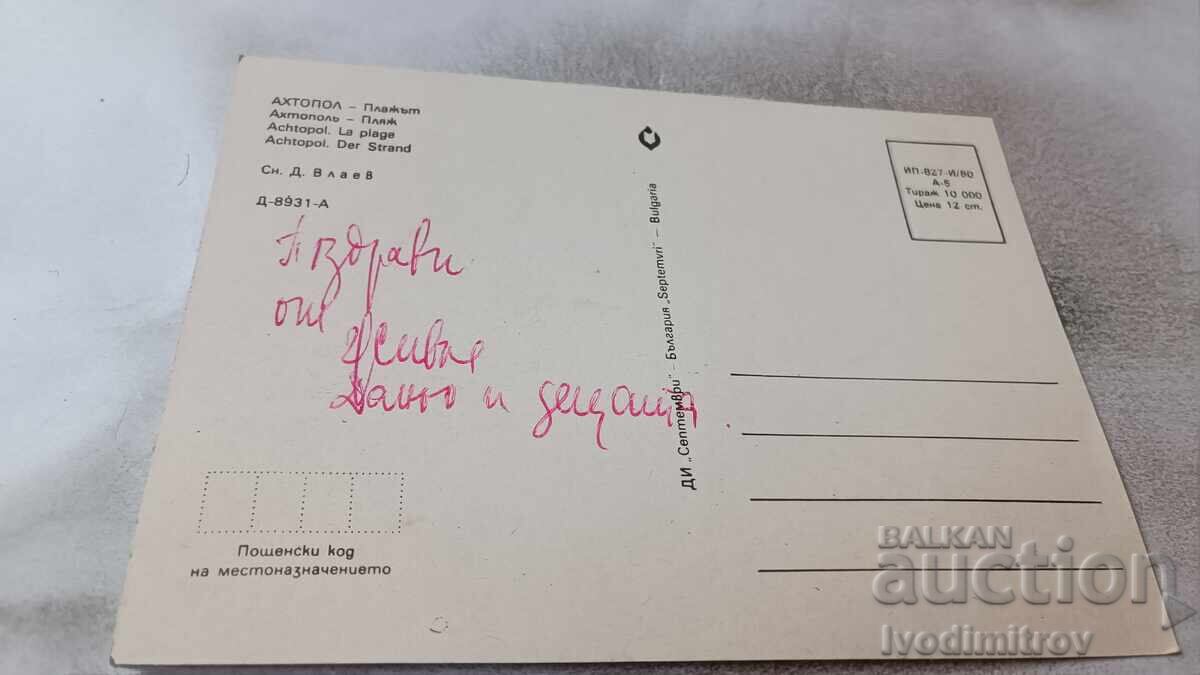 АХТОПОЛ – Плажът
Ахтополь – Пляж
Achtopol. La plage
Achtopol. Der Strand
Сн. Д. Влаев
Д-8931-А
Пздрави
от
Живка
Даньо и децата.
Пощенски код
на местоназначението
ДИ „Септември" – България „Septemvri" – Bulgaria
ИП-827-И/80
А-5
Тираж 10 000
Цена 12 ст.
BALKAN
auction
Ivodimitrov